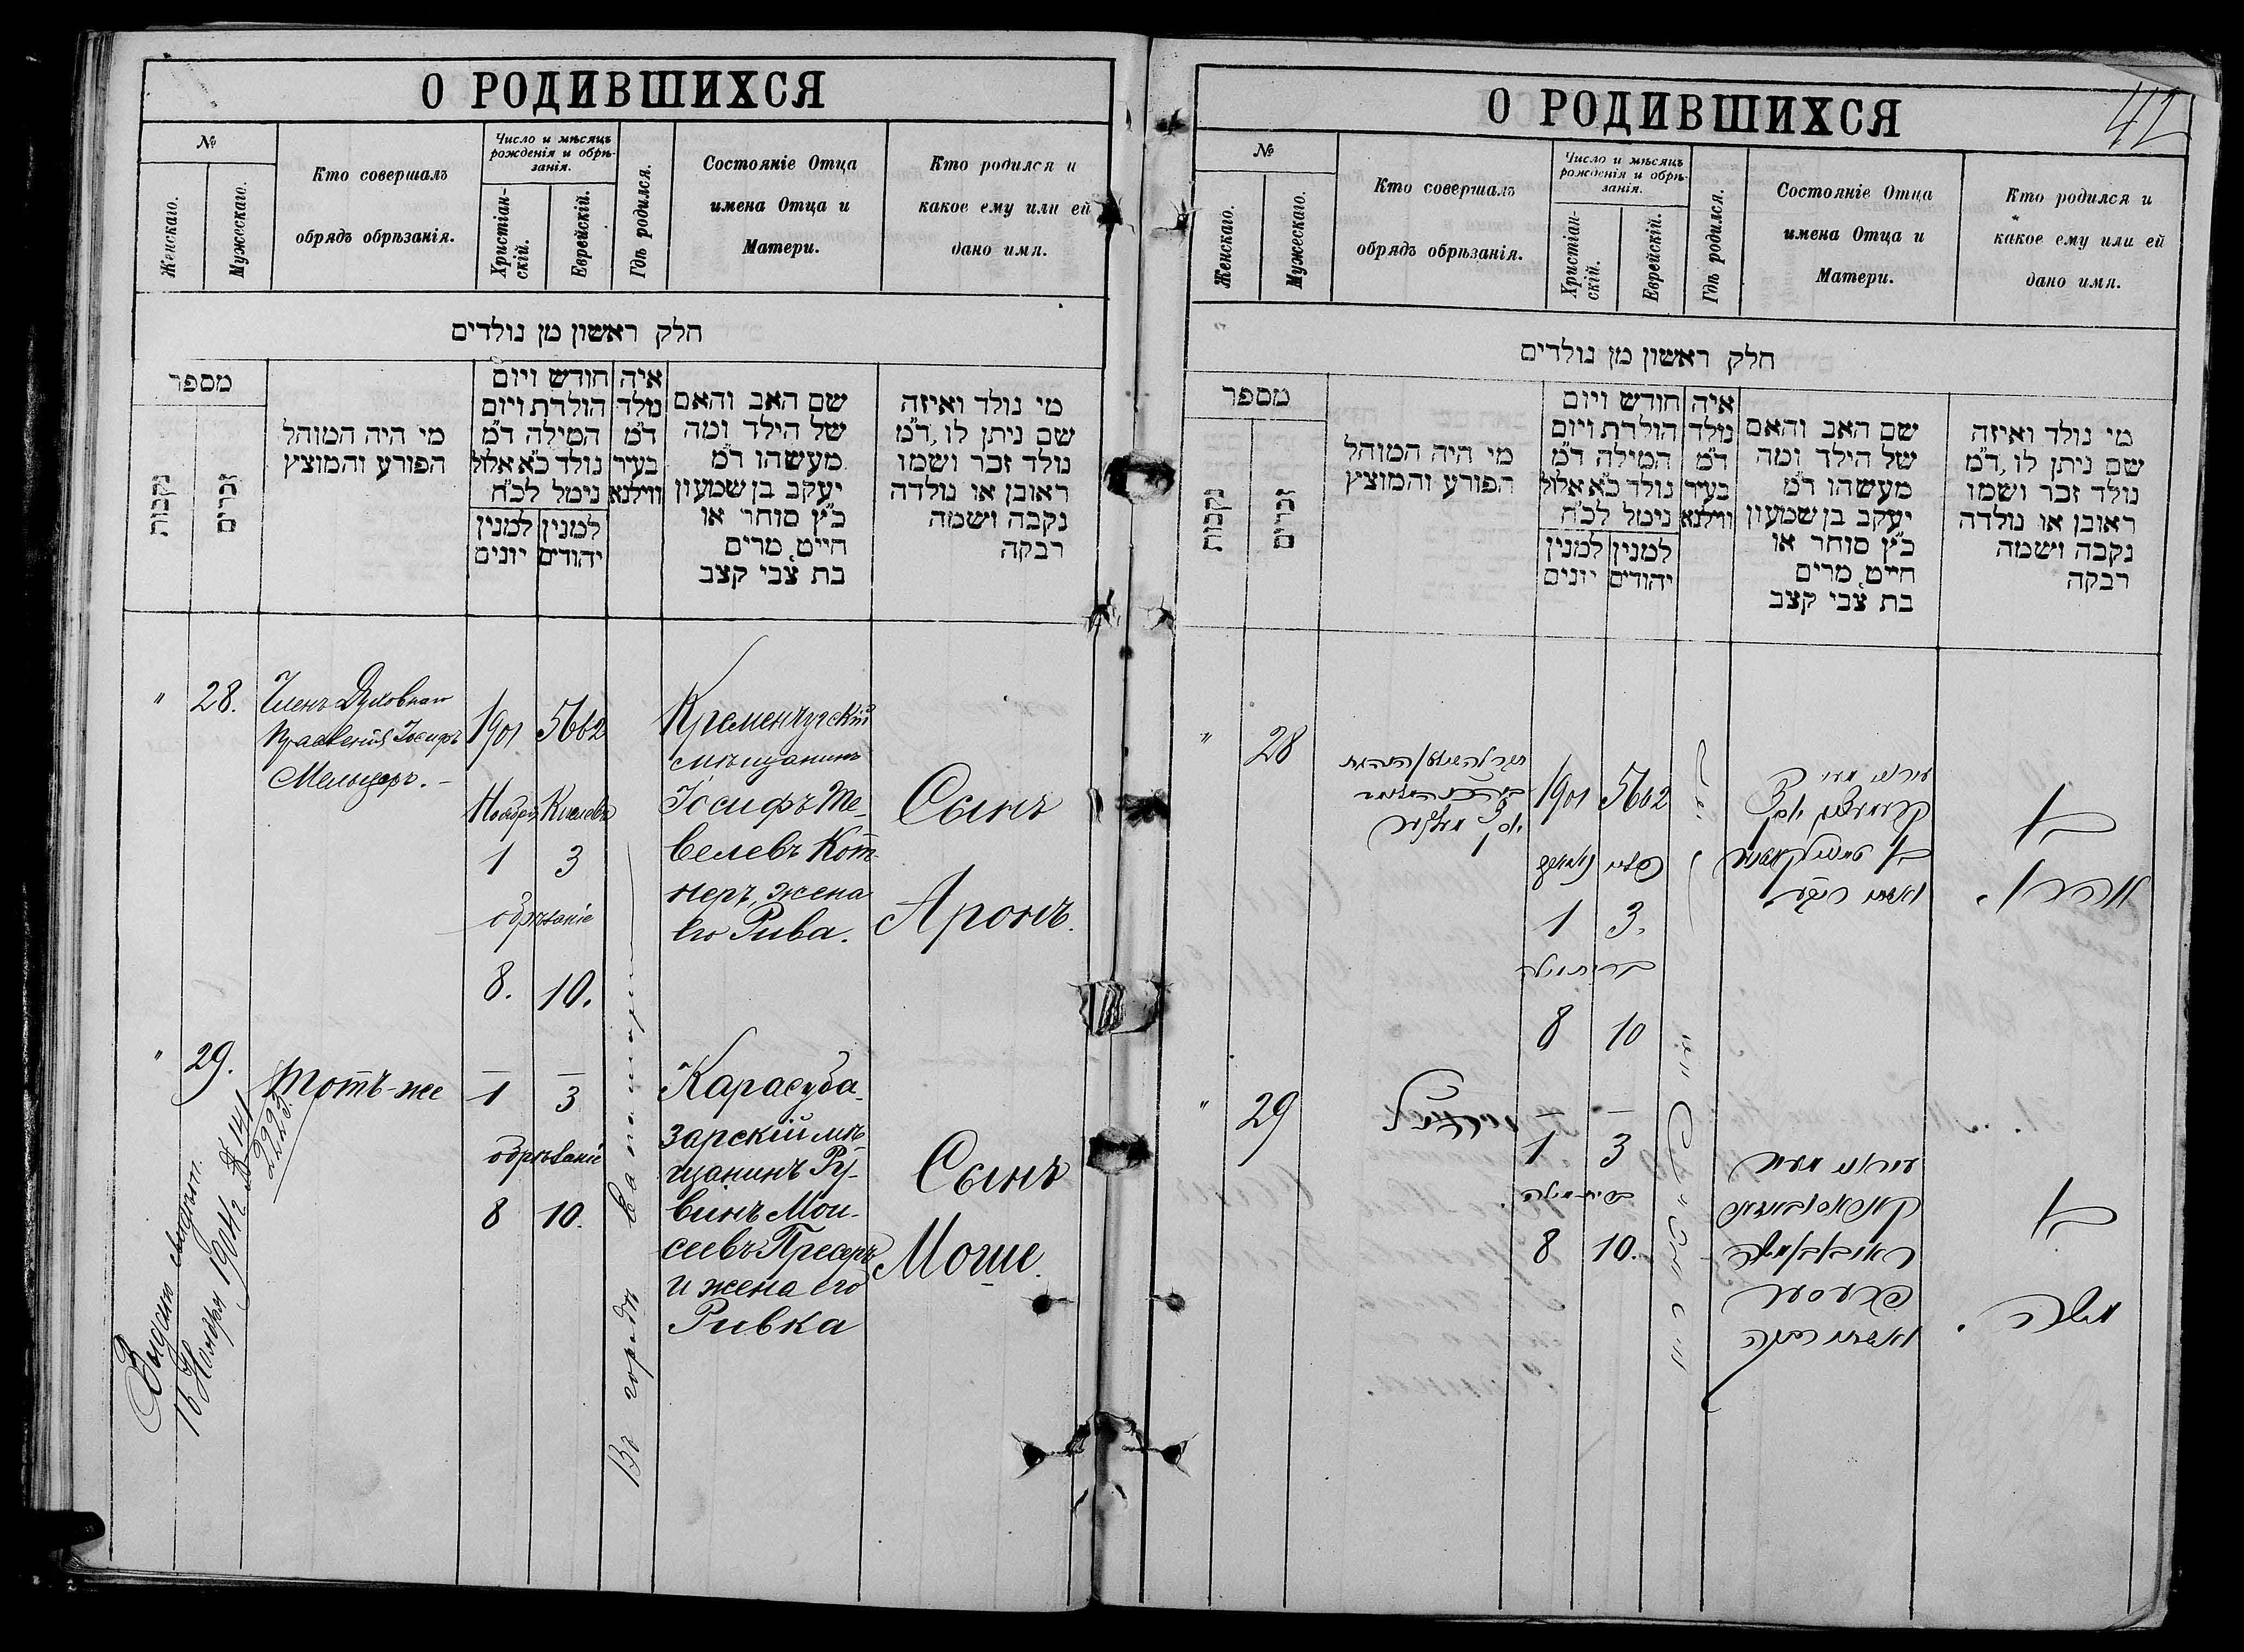 О РОДИВШИХСЯ
№
Женскаго.
Мужескаго.
Кто совершалъ
обрядъ обрѣзанія.
Число и мѣсяцъ
рожденія и обрѣ-
занія.
Христіан-
скій.
Еврейскій.
Гдѣ родился.
Состояніе Отца
имена Отца и
Матери.
Кто родился и
какое ему или ей
дано имя.
חלק ראשון מן נולדים
מספר
נקבות
זכרים
מי היה המוהל
הפורע והמוצץ
חודש ויום
הולדת ויום
המילה ד״מ
נולד כ״א אלול
נימל לכ״ח
למנין
יונים
למנין
יהודים
איה
נולד
ד״מ
בעיר
ווילנא
שם האב והאם
של הילד ומה
מעשהו ד״מ
יעקב בן שמעון
כ״ץ סוחר או
חייט, מרים
בת צבי קצב
מי נולד ואיזה
שם ניתן לו, ד״מ
נולד זכר ושמו
ראובן או נולדה
נקבה ושמה
רבקה
" 28.
Членъ Духовнаго
Правленія Іосифъ
Мельцеръ. –
1901 5662
Ноября Кислевъ
1 3
обрѣзаніе
8. 10.
Въ городѣ
Кременчугскій
мѣщанинъ
Іосифъ Те-
велевъ
жена
его Рива.
Сынъ
Аронъ.
" 29.
тотъ-же
1 3
обрѣзаніе
8 10.
Карасуба-
зарскій мѣ-
щанинъ Ру-
винъ Мои-
сеевъ Пресеръ
и жена его
Ривка
Сынъ
Моше.
16 Ноября 1904 г. № 141
2223.
42
О РОДИВШИХСЯ
№
Женскаго.
Мужескаго.
Кто совершалъ
обрядъ обрѣзанія.
Число и мѣсяцъ
рожденія и обрѣ-
занія.
Христіан-
скій.
Еврейскій.
Гдѣ родился.
Состояніе Отца
имена Отца и
Матери.
Кто родился и
какое ему или ей
дано имя.
חלק ראשון מן נולדים
מספר
נקבות
זכרים
מי היה המוהל
הפורע והמוצץ
חודש ויום
הולדת ויום
המילה ד״מ
נולד כ״א אלול
נימל לכ״ח
למנין
יונים
למנין
יהודים
איה
נולד
ד״מ
בעיר
ווילנא
שם האב והאם
של הילד ומה
מעשהו ד״מ
יעקב בן שמעון
כ״ץ סוחר או
חייט, מרים
בת צבי קצב
מי נולד ואיזה
שם ניתן לו, ד״מ
נולד זכר ושמו
ראובן או נולדה
נקבה ושמה
רבקה
" 28
1901 5662
1 3
ברית מילה
8 10
בן
אהרן.
" 29
1 3
ברית מילה
8 10.
ואשתו רבקה
בן
משה.